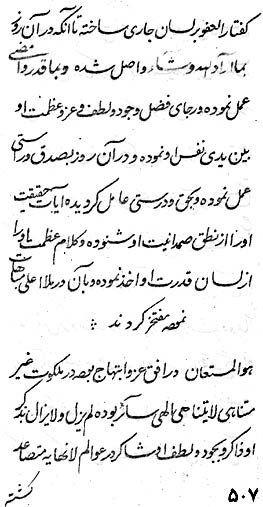 كفتار العفو بر لسان جاری ساخته تا آنكه در آن روز
بما اراد الله و شاء واصل شده و بما قدر و امضی
عمل نموده و رجای فضل و جود و لطف و عز و عظمت او
بین یدی نفس او نموده و در آن روز بصدق و راستی
عمل نموده و بحق و درستی عامل كردیده ایات حقیقت
او را از نطق صمدانیت او شنوده و كلام عظمت او را
از لسان قدرت او اخذ نموده و بآن در ملاء اعلی مباهات
نموده مفتخر كردند
هو المستعان در افق عز و ابتهاج بوده در ملكوت غیر
متناهی لایتناهی الهی سائر بوده لم یزل و لا یزال بذكر
او ذاكر و بجود و لطف او شاكر در عوالم لانهایه متصاعد
كشته
۵۰۷